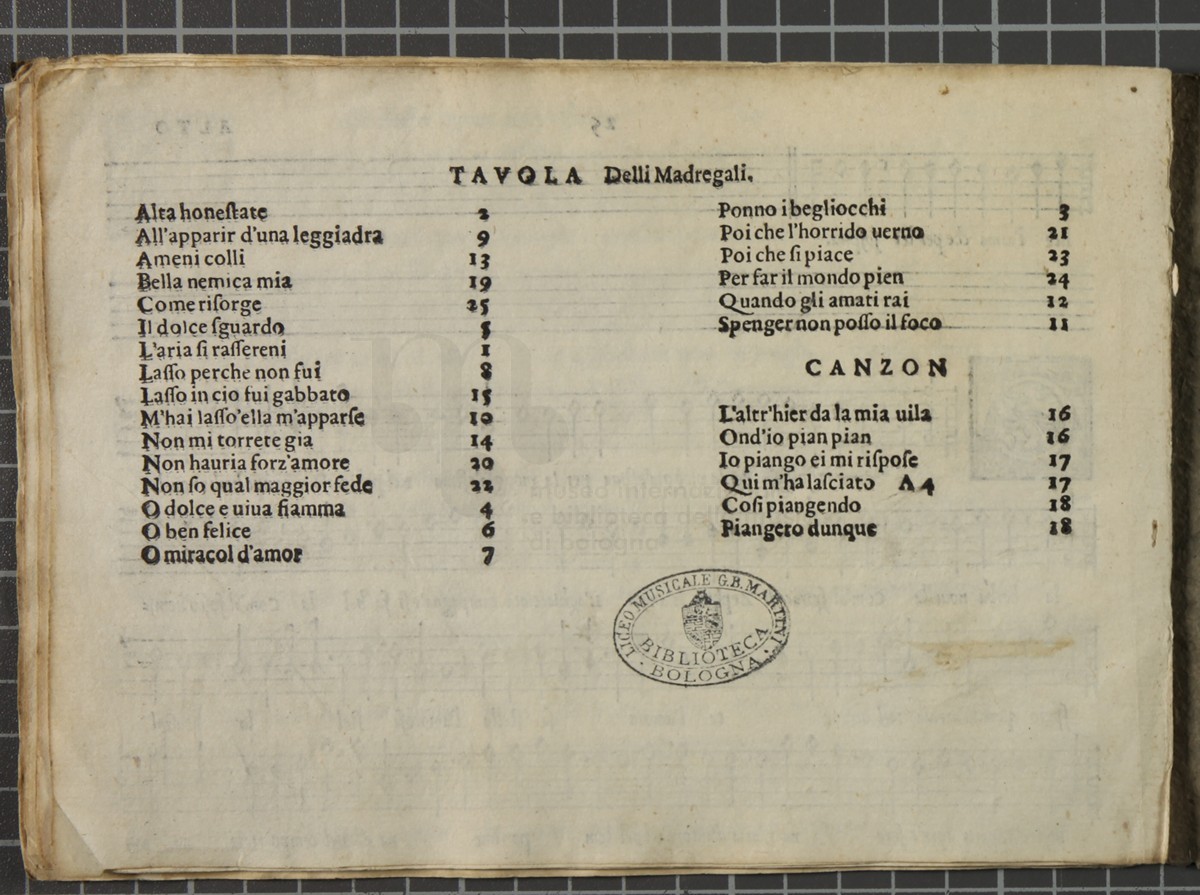 TAVOLA Delli Madregali.
Alta honeſtate 2
All'apparir d'una leggiadra 9
Ameni colli 13
Bella nemica mia 19
Come riſorge 25
Il dolce ſguardo 5
L'aria ſi raſſereni 1
Laſſo perche non fui 8
Laſſo in cio fui gabbato 15
M'hai laſſo'ella m'apparſe 10
Non mi torrete gia 14
Non hauria forz'amore 20
Non ſo qual maggior fede 22
O dolce e uiua fiamma 4
O ben felice 6
O miracol d'amor 7
Ponno i begliocchi 3
Poi che l'horrido uerno 21
Poi che ſi piace 23
Per far il mondo pien 24
Quando gli amati rai 12
Spenger non poſſo il foco 11
CANZON
L'altr'hier da la mia uila 16
Ond'io pian pian 16
Io piango ei mi riſpoſe 17
Qui m'ha laſciato A 4 17
Coſi piangendo 18
Piangero dunque 18
LICEO MUSICALE G.B. MARTINI
BIBLIOTECA
· BOLOGNA ·